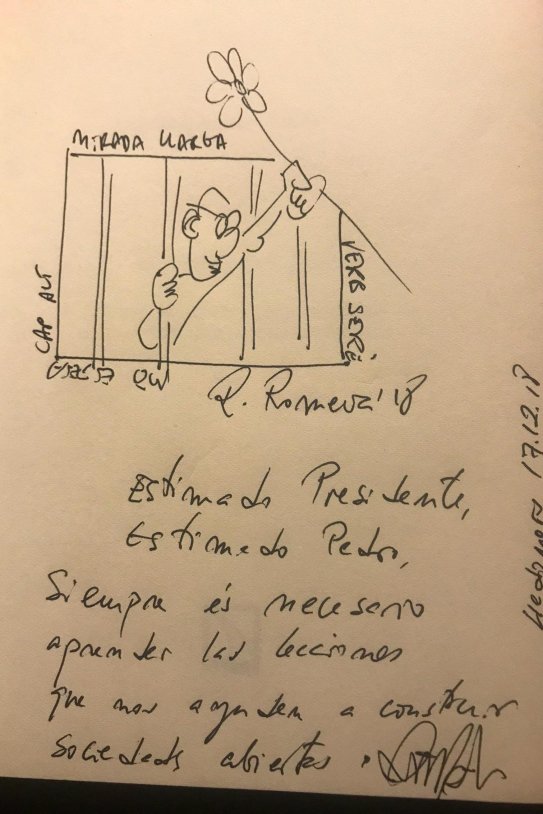 MIRADA LLARGA
CAP ALT
VERB SERÈ
R. Romeva '18
17.12.18
Estimado Presidente,
Estimado Pedro,
Siempre és necesario
aprender las lecciones
que nos ayuden a construir
sociedads abiertas.